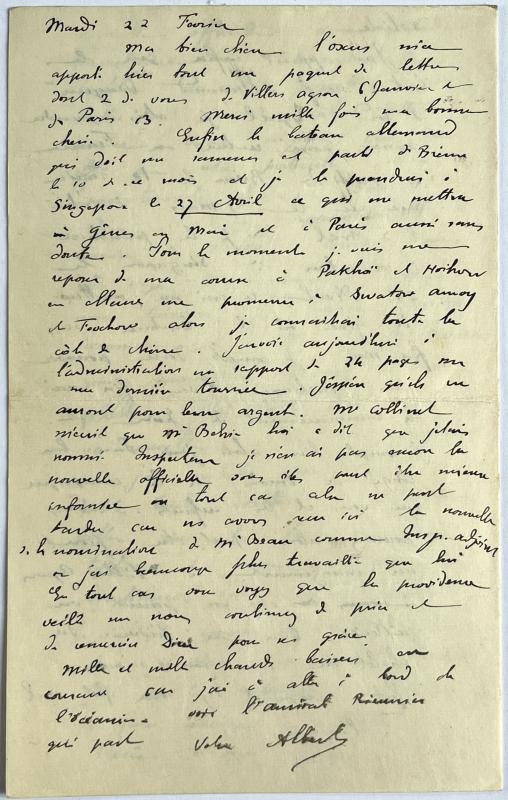 Mardi 22 Fevrier
Ma bien chère l'oxus m'a
apporté hier tout un paquet de lettres
dont 2 de vous de Villers agron 6 Janvier et
de Paris 13. Merci mille fois ma bonne
chérie. Enfin le bateau allemand
qui doit me ramener est parti de Brême
le 10 de ce mois et je le prendrai à
Singapore le 27 Avril ce qui me mettra
à Gênes en Mai et à Paris aussi sans
doute. Pour le moment je suis me
reposer de ma course à Pakhoï et Hoihow
en allant me promener à Swatow amoy
et Foochow alors je connaîtrai toute la
côte de Chine. J'envoie aujourd'hui à
l'administration un rapport de 24 pages sur
ma dernière tournée. J'espère qu'ils en
auront pour leur argent. Mr Collinet
m'écrit que Mr Behic lui a dit que j'étais
nommé Inspecteur je n'en ai pas encore la
nouvelle officielle vous êtes peut être mieux
informée en tout cas cela ne peut
tarder car ns avons reçu ici la nouvelle
de la nomination de Mr Beau comme Insp. adjoint
or j'ai beaucoup plus travaillé que lui
En tout cas vous voyez que la providence
veille sur nous continuez de prier et
de remercier Dieu pour ses grâces.
Mille et mille chauds baisers en
courant car j'ai à aller à bord de
l'Océanien voir l'amiral Rieunier
qui part Votre Albert